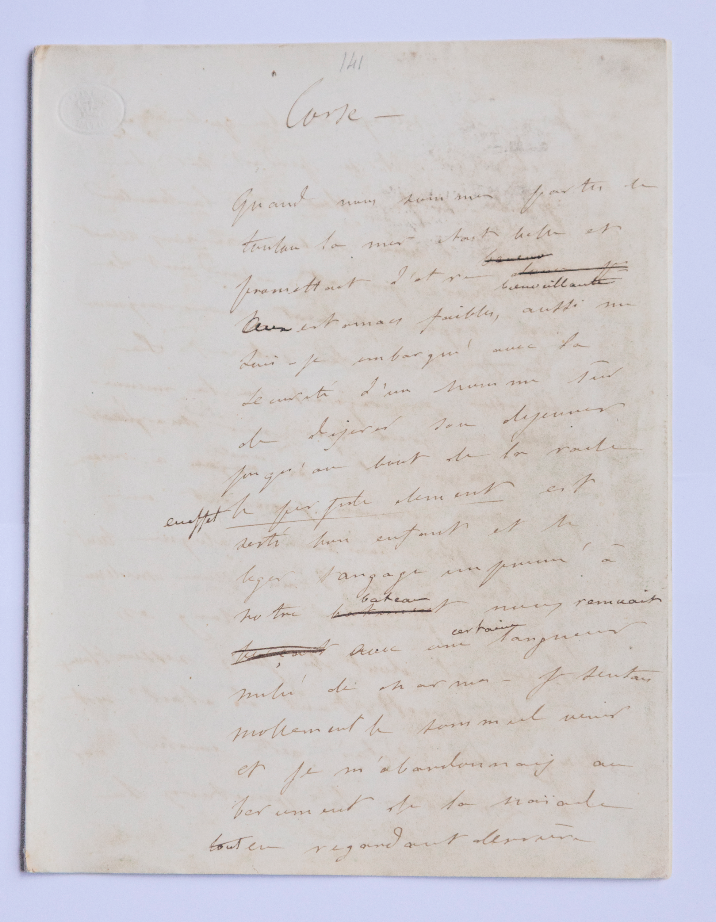 141
Corse —
Quand nous sommes partis de
toulon la mer était belle et
promettait d'être bienveillante
aux estomacs faibles, aussi me
suis-je embarqué avec la
sécurité d'un homme sûr
de digérer son déjeuner
jusqu'au bout de la rade
en effet le perfide élément est
resté bon enfant et le
leger tangage imprimé à
notre bateau nous remuait
avec une certaine langueur
mêlée de charme - je sentais
mollement le sommeil venir
et je m'abandonnais au
bercement de la naïade
tout en regardant derrière